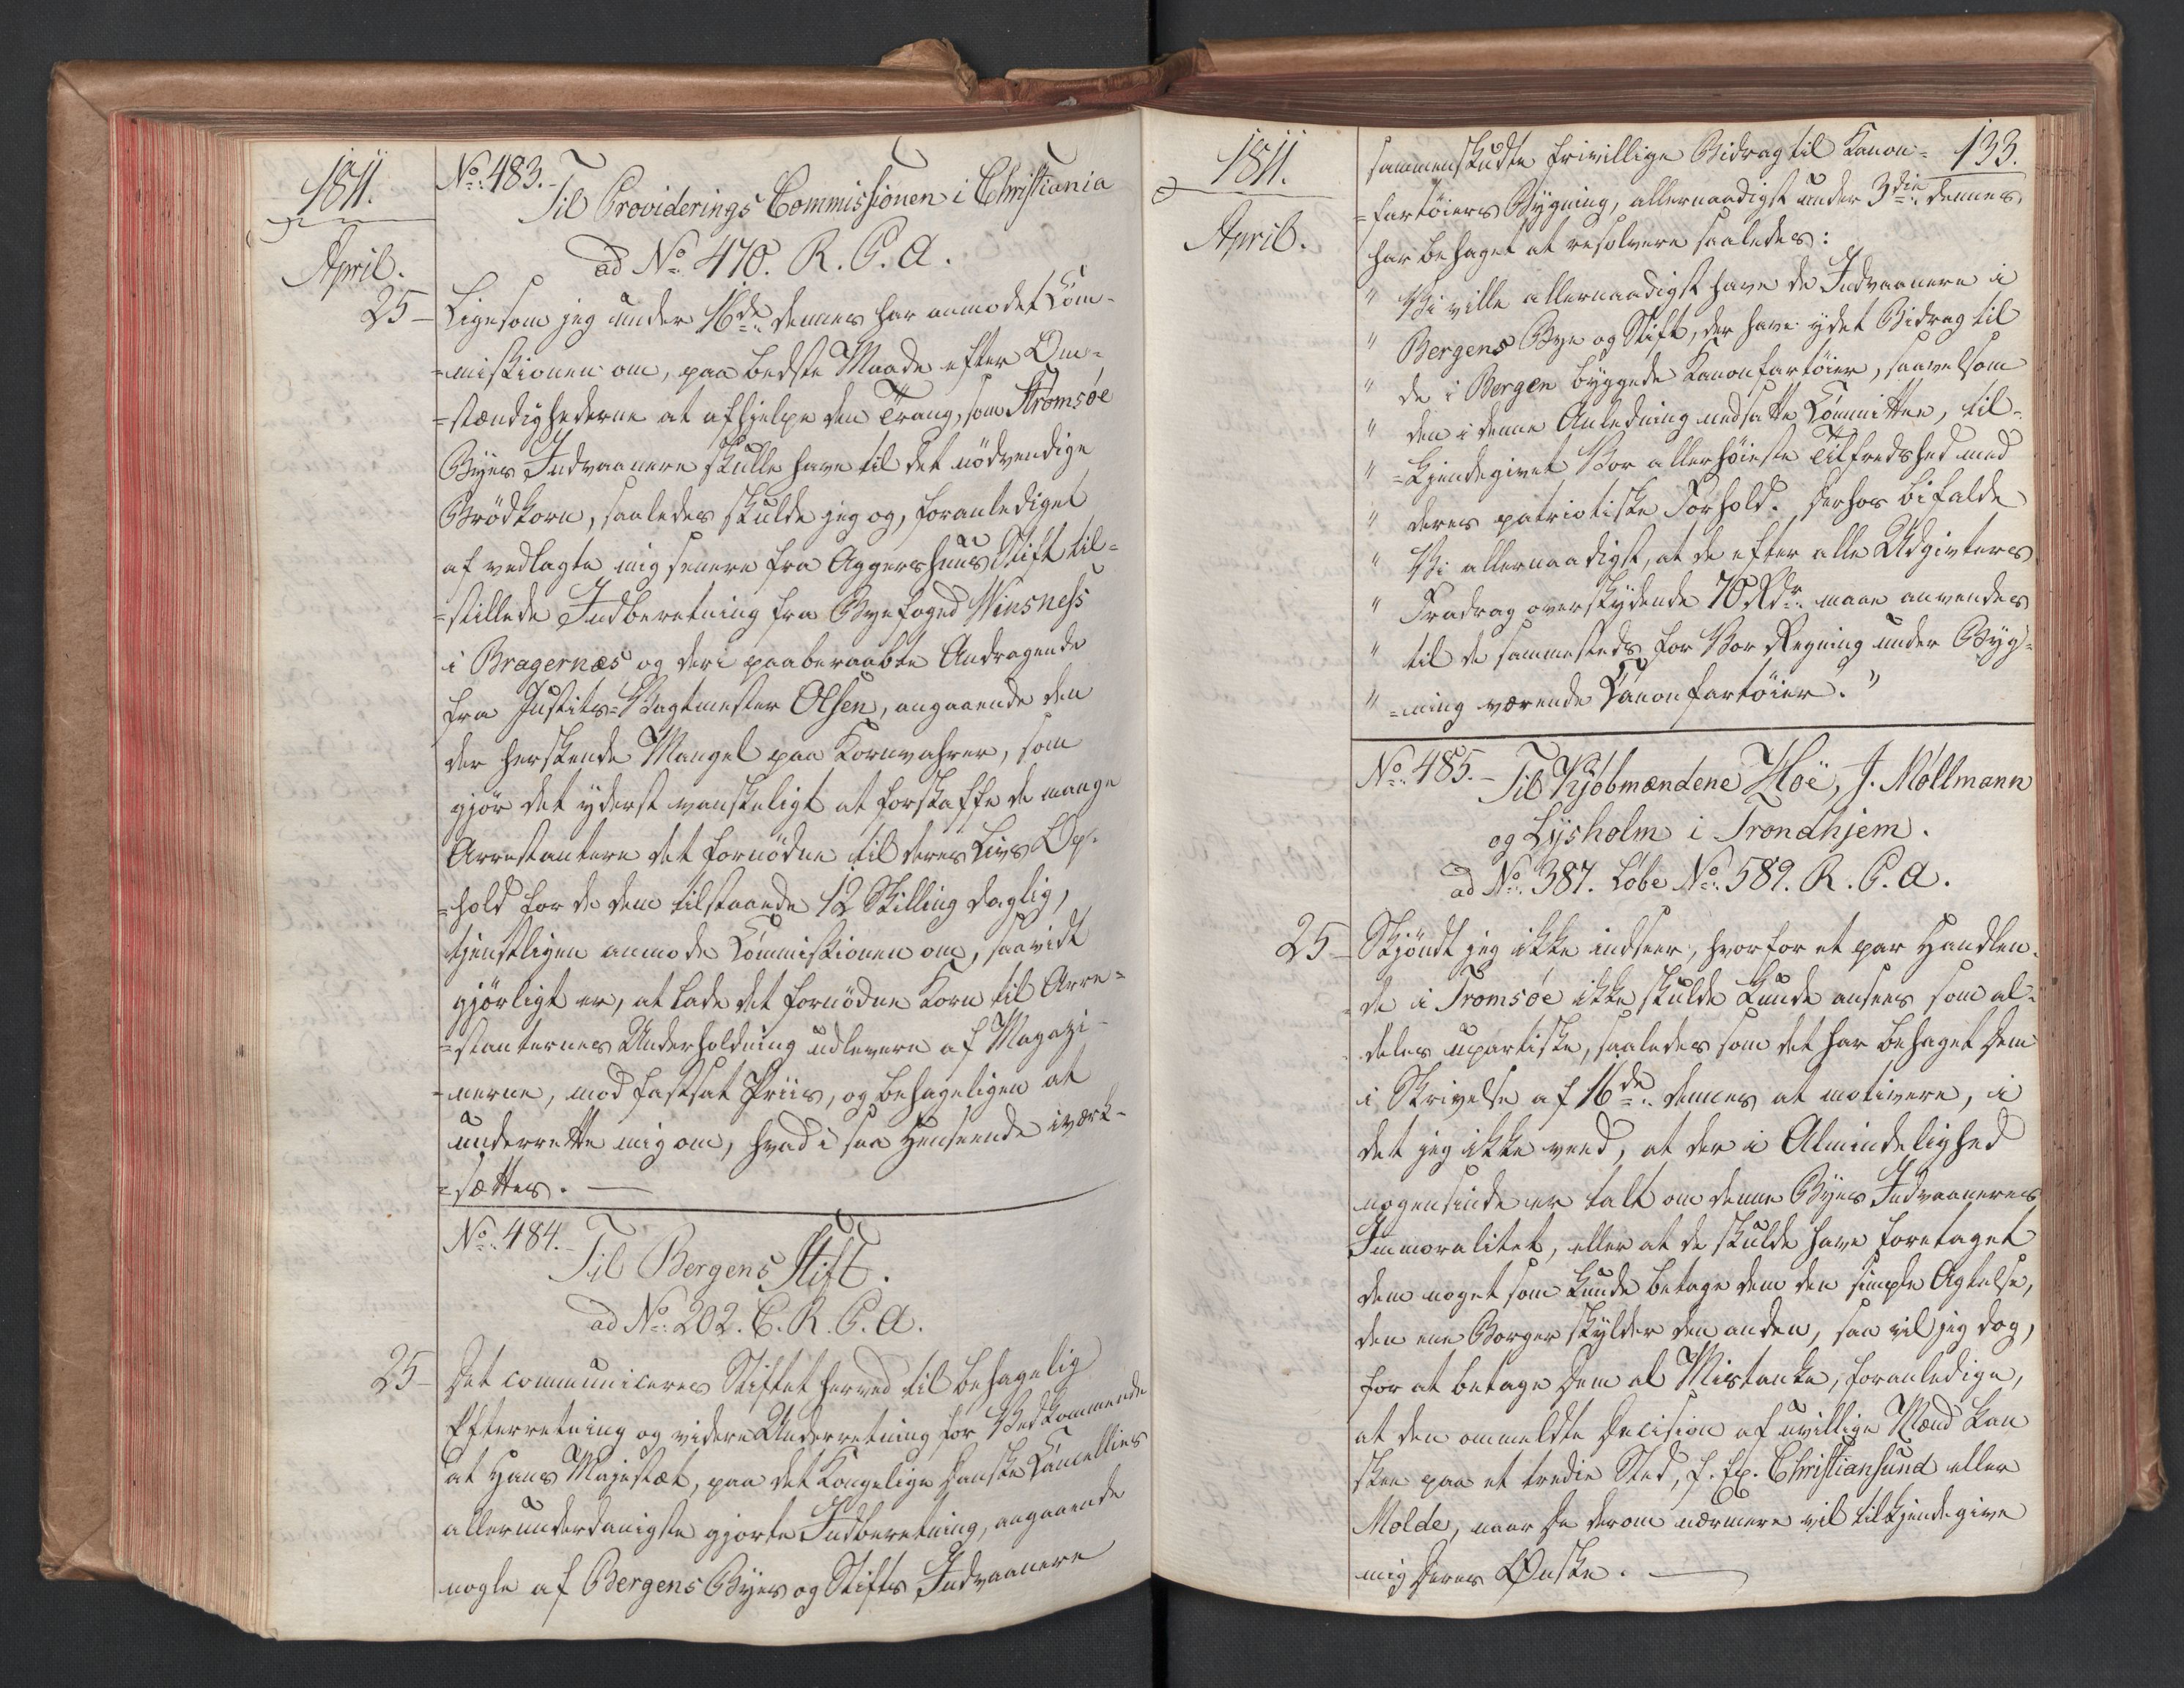 1811.
No. 483.
Til Providerings Commissionen i Christiania
ad No. 470. R. P. A.
April.
25 - Ligesom jeg under 16de dennes har anmodet Com-
=missionen om, paa bedste Maade efter Om-
=stændighederne at afhjelpe den Trang, som Strømsøe
Byes Indvaanere skulle have til det nödvendige
Brödkorn, saaledes skulde jeg og, foranlediget
af vedlagte mig senere fra Aggershuus Stift til-
=stillede Indberetning fra Byefoged Winsness
i Bragernæs og deri paaberaabte Andragende
fra Justits-Vagtmester Olsen, angaaende den
der herskende Mangel paa Kornvahrer, som
gjör det yderst vanskeligt at forskaffe de mange
Arrestantere det fornödne til deres Livs Op-
=hold for de dem tilstaaede 12 Skilling daglig,
tjenstligen anmode Commissionen om, saavidt
gjörligt er, at lade det fornödne Korn til Arre-
=stanternes Underholdning udlevere af Magazi-
=nerne, mod fastsat Priis, og behageligen at
underrette mig om, hvad i saa Henseende iværk-
=sættes. —
No. 484.
Til Bergens Stift.
ad No. 202. C. R. P. A.
25 - Det communiceres Stiftet herved til behagelig
Efterretning og videre Underretning for Vedkommende
at Hans Majestæt, paa det Kongelige danske Cancellies
allerunderdanigste gjorte Indberetning, angaaende
nogle af Bergens Byes og Stifts Indvaanere
1811.
133.
April.
sammenskudte frivillige Bidrag til Kanon-
=fartöiers Bygning, allernaadigst under 3die dennes
har behaget at resolvere saaledes:
" Vi ville allernaadigst have de Indvaanere i
" Bergens Bye og Stift, der have ydet Bidrag til
" de i Bergen byggede Kanonfartöier, saavelsom
" den i denne Anledning nedsatte Committee, til-
" =kjendegivet Vor allerhöieste Tilfredshed med
" deres patriotiske Forhold. Derhos bifalde
" Vi allernaadigst, at de efter alle Udgivters
" Fradrag overskydende 70 Rdr. maae anvendes
" til de sammesteds for Vor Regning under Byg-
" =ning værende Kanonfartöier."
No. 485. - Til Kjöbmændene Hoë, J. Møllmann
og Lysholm i Trondhjem.
ad No. 387. Løbe No. 589. R. P. A.
25 - Skjöndt jeg ikke indseer, hvorfor et par Handlen-
=de i Tromsöe ikke skulde kunde ansees som al-
deles upartiske, saaledes som det har behaget Dem
i Skrivelse af 16de dennes at motivere, i
det jeg ikke veed, at der i Almindelighed
nogensinde er talt om denne Byes Indvaaneres
Immoralitet, eller at de skulde have foretaget
dem noget som kunde betage dem den simple Agtelse,
den ene Borger skylder den anden, saa vil jeg dog,
for at betage Dem al Mistanke, foranledige,
at den ommeldte Decision af uvillige Mænd kan
skee paa et tredie Sted, f. Ex. Christiansund eller
Molde, naar De derom nærmere vil tilkjendegive
mig Deres Ønske. —